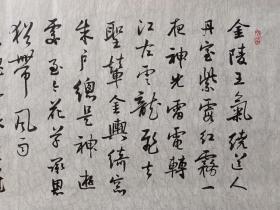 金陵王氣繞道人
丹室紫霞紅霧一
夜神光雷電轉
江左雲龍飛去
輦金輿綺窗
朱戶總是神遊
處至今花草承恩
猶帶風雨